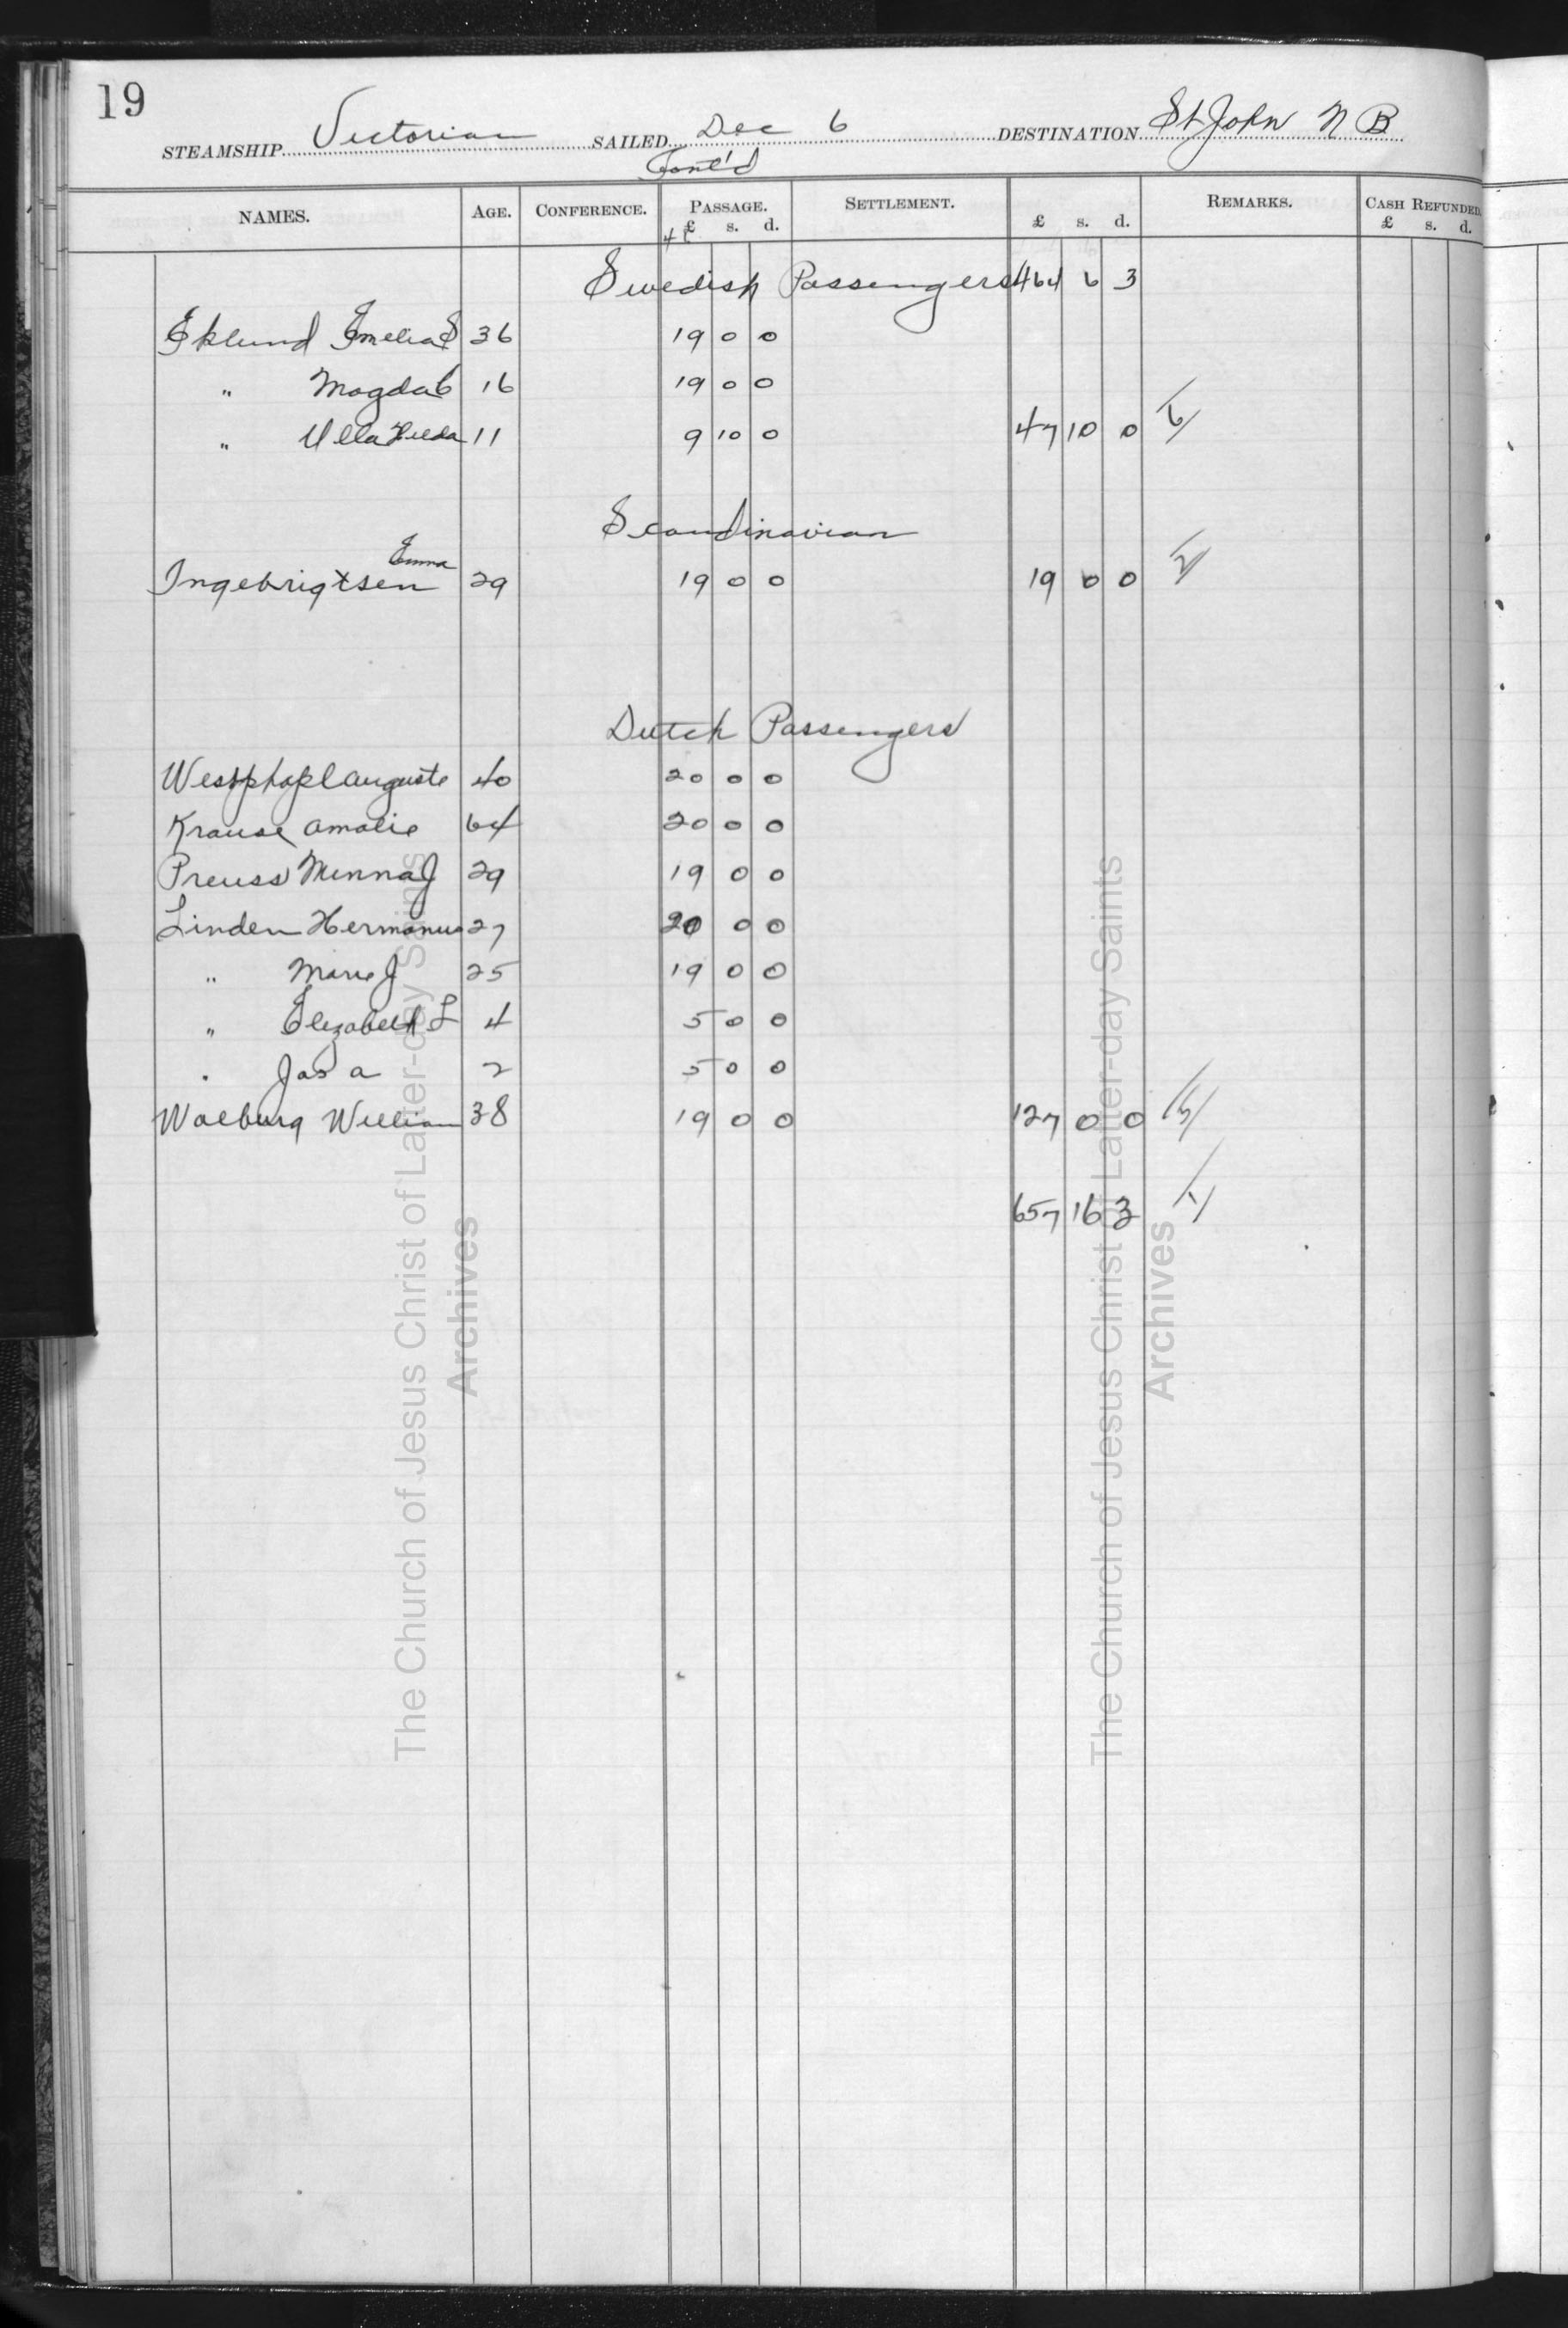 19
STEAMSHIP Victorian SAILED Dec 6 DESTINATION St John N B
Cont'd
NAMES. AGE. CONFERENCE. PASSAGE. SETTLEMENT. REMARKS. CASH REFUNDED.
£ s. d. £ s. d. £ s. d.
Swedish Passengers 464 6 3
Eklund Emelia S 36 19 0 0
" Magda C 16 19 0 0
" Ulla Hilda 11 9 10 0 47 10 0
Scandinavian
Emma
Ingebrigtsen 29 19 0 0 19 0 0
Dutch Passengers
Westphahl Auguste 40 20 0 0
Krause Amalie 64 20 0 0
Preuss Minna J 29 19 0 0
Linden Hermanus 27 20 0 0
" Marie J 25 19 0 0
" Elizabeth L 4 5 0 0
" Jas A 2 5 0 0
Walburg William 38 19 0 0 127 0 0
657 16 3
The Church of Jesus Christ of Latter-day Saints
Archives
The Church of Jesus Christ of Latter-day Saints
Archives